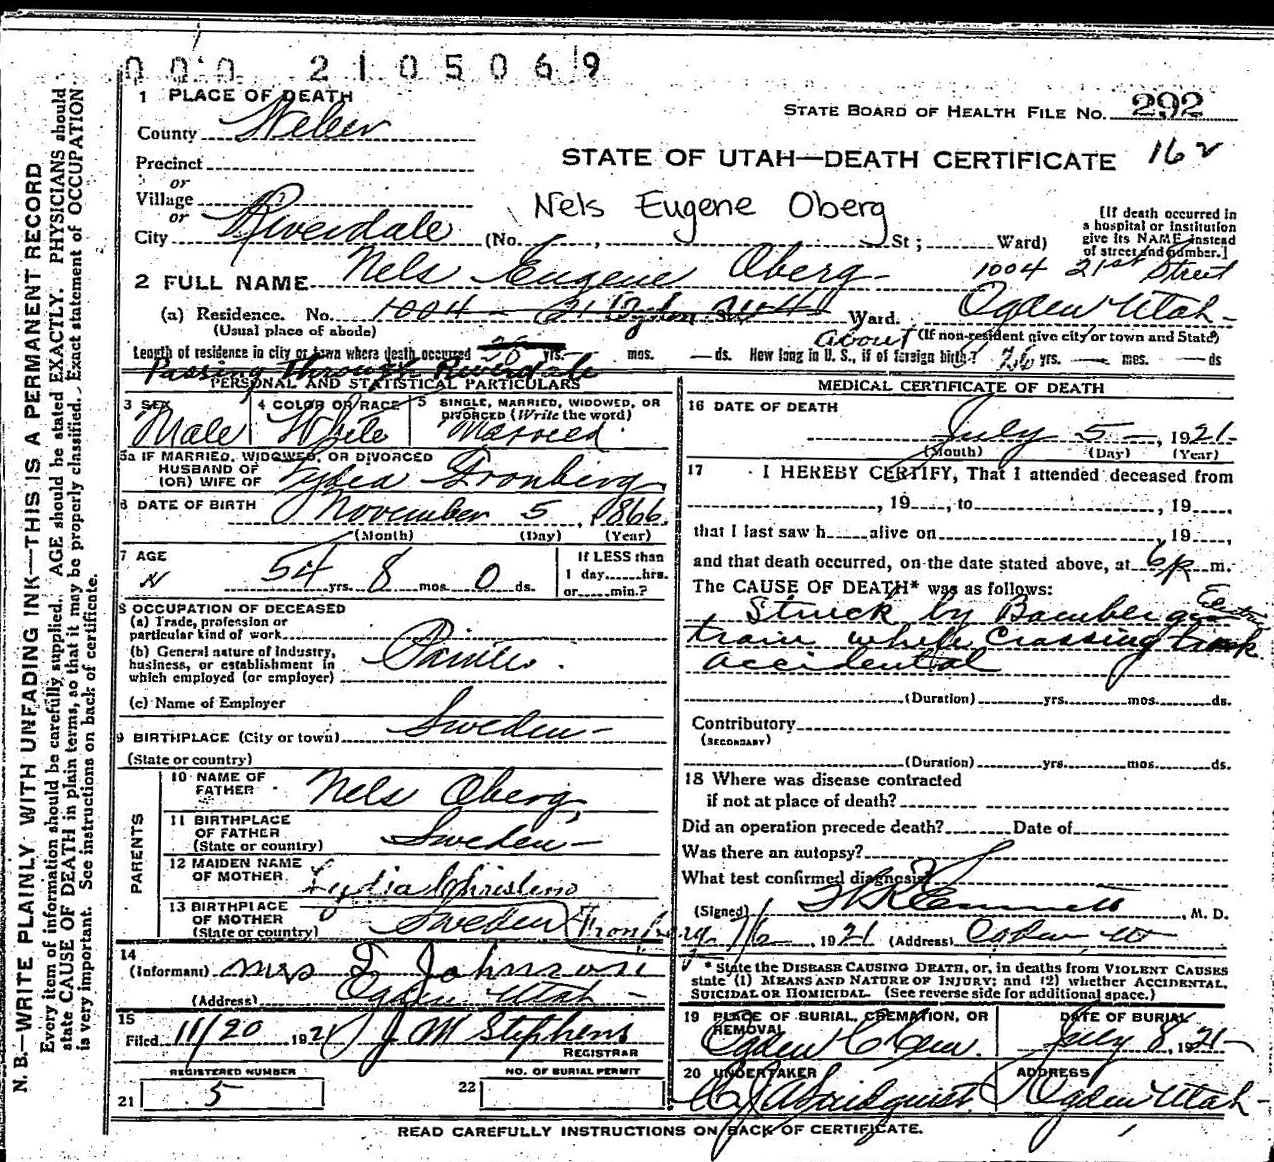 000 2105069
1 PLACE OF DEATH
STATE BOARD OF HEALTH FILE No. 292
County Weber
STATE OF UTAH—DEATH CERTIFICATE 162
Precinct
or
Village
Nels Eugene Oberg
or
City Riverdale (No. , St ; Ward)
[If death occurred in
a hospital or institution
give its NAME instead
of street and number.]
2 FULL NAME Nels Eugene Oberg
1004 21st Street
(a) Residence. No. 1004 21 Ogden Utah St. Ward. Ogden Utah
(Usual place of abode)
(If non-resident give city or town and State)
about
Length of residence in city or town where death occurred 38 yrs. mos. ds. How long in U. S., if of foreign birth? 36 yrs. mos. ds
Passing Through Riverdale
PERSONAL AND STATISTICAL PARTICULARS
3 SEX
Male
4 COLOR OR RACE
White
5 SINGLE, MARRIED, WIDOWED, OR
DIVORCED (Write the word)
Married
5a IF MARRIED, WIDOWED, OR DIVORCED
HUSBAND OF
(OR) WIFE OF Lydia Fronberg
6 DATE OF BIRTH November 5, 1866
(Month) (Day) (Year)
7 AGE
54 yrs. 8 mos. 0 ds.
If LESS than
1 day......hrs.
or......min.?
8 OCCUPATION OF DECEASED
(a) Trade, profession or
particular kind of work
(b) General nature of Industry,
business, or establishment in
which employed (or employer)
Painter.
(c) Name of Employer
9 BIRTHPLACE (City or town) Sweden
(State or country)
PARENTS
10 NAME OF
FATHER Nels Oberg
11 BIRTHPLACE
OF FATHER
(State or country) Sweden
12 MAIDEN NAME
OF MOTHER Lydia Christine
13 BIRTHPLACE
OF MOTHER
(State or country) Sweden (Fronberg
14
(Informant) Mrs E Johnson
(Address) Ogden Utah
15
Filed 11/20 1921 J M Stephens
REGISTRAR
REGISTERED NUMBER
21 5
NO. OF BURIAL PERMIT
22
MEDICAL CERTIFICATE OF DEATH
16 DATE OF DEATH
July 5, 1921
(Month) (Day) (Year)
17 I HEREBY CERTIFY, That I attended deceased from
, 19 , to , 19 ,
that I last saw h alive on , 19 ,
and that death occurred, on the date stated above, at 6 p m.
The CAUSE OF DEATH* was as follows:
Struck by Bamberger Electric
train while crossing track
accidental
(Duration) yrs. mos. ds.
Contributory
(SECONDARY)
(Duration) yrs. mos. ds.
18 Where was disease contracted
if not at place of death?
Did an operation precede death? Date of
Was there an autopsy?
What test confirmed diagnosis?
(Signed) Emmett, M. D.
7/6 1921 (Address) Ogden Ut
* State the DISEASE CAUSING DEATH, or, in deaths from VIOLENT CAUSES
state (1) MEANS AND NATURE OF INJURY; and (2) whether ACCIDENTAL,
SUICIDAL OR HOMICIDAL. (See reverse side for additional space.)
19 PLACE OF BURIAL, CREMATION, OR
REMOVAL
Ogden Cem.
DATE OF BURIAL
July 8, 1921
20 UNDERTAKER
C J A Lindquist
ADDRESS
Ogden Utah
READ CAREFULLY INSTRUCTIONS ON BACK OF CERTIFICATE.
N. B.—WRITE PLAINLY, WITH UNFADING INK—THIS IS A PERMANENT RECORD
Every item of information should be carefully supplied. AGE should be stated EXACTLY. PHYSICIANS should
state CAUSE OF DEATH in plain terms, so that it may be properly classified. Exact statement of OCCUPATION
is very important. See instructions on back of certificate.